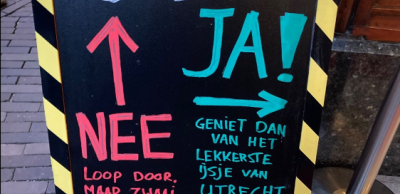 NEE
LOOP DOOR,
MAAR ZWAAI
JA!
GENIET DAN
VAN HET
LEKKERSTE
IJSJE VAN
UTRECHT